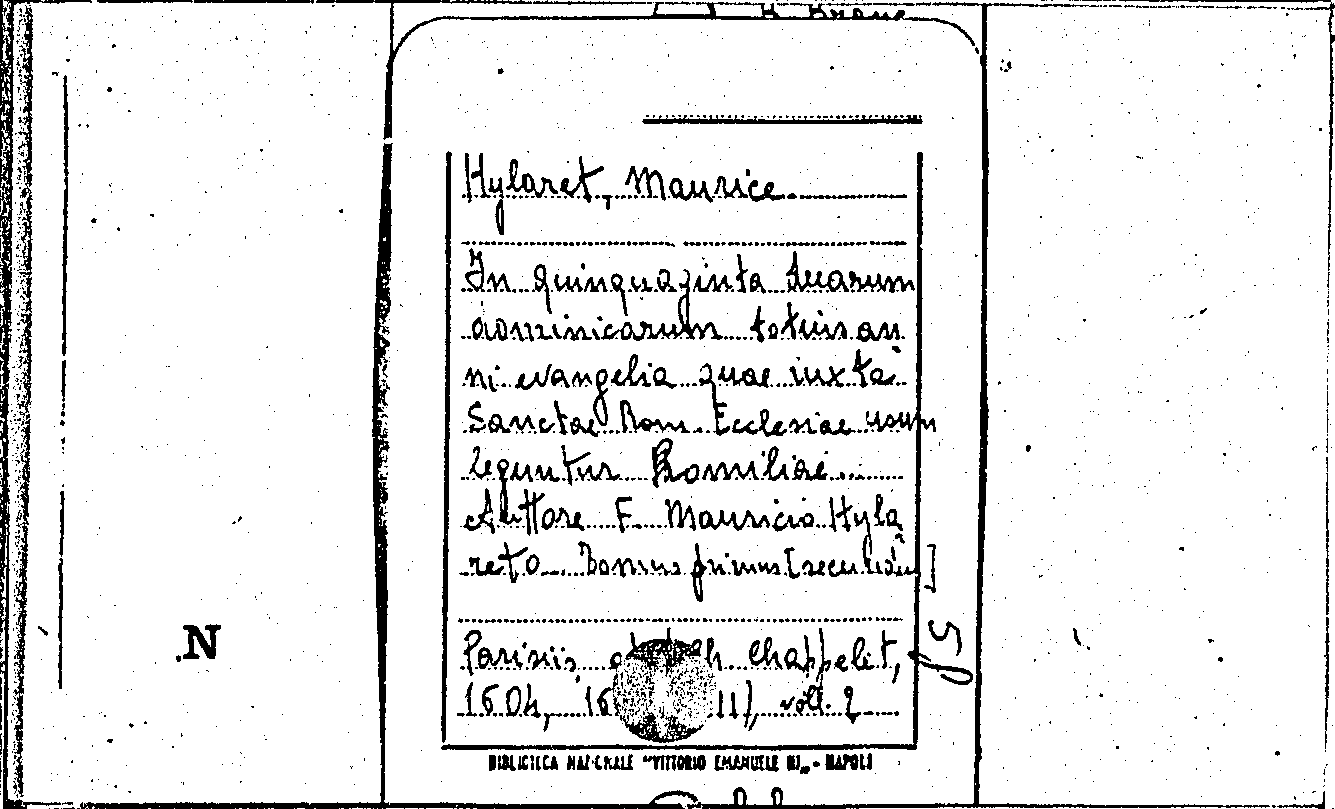 Hylaret, Maurice.
In quinquaginta duarum
dominicarum totius an
ni evangelia quae iuxta
Sanctae Rom. Ecclesiae usum
leguntur Homiliae...
Auttore F. Mauricio Hyla
reto. Tomus primus [secundus]
Parisiis, Chappelet,
1604, vol. 2
N
BIBLIOTECA NAZIONALE "VITTORIO EMANUELE III„ - NAPOLI